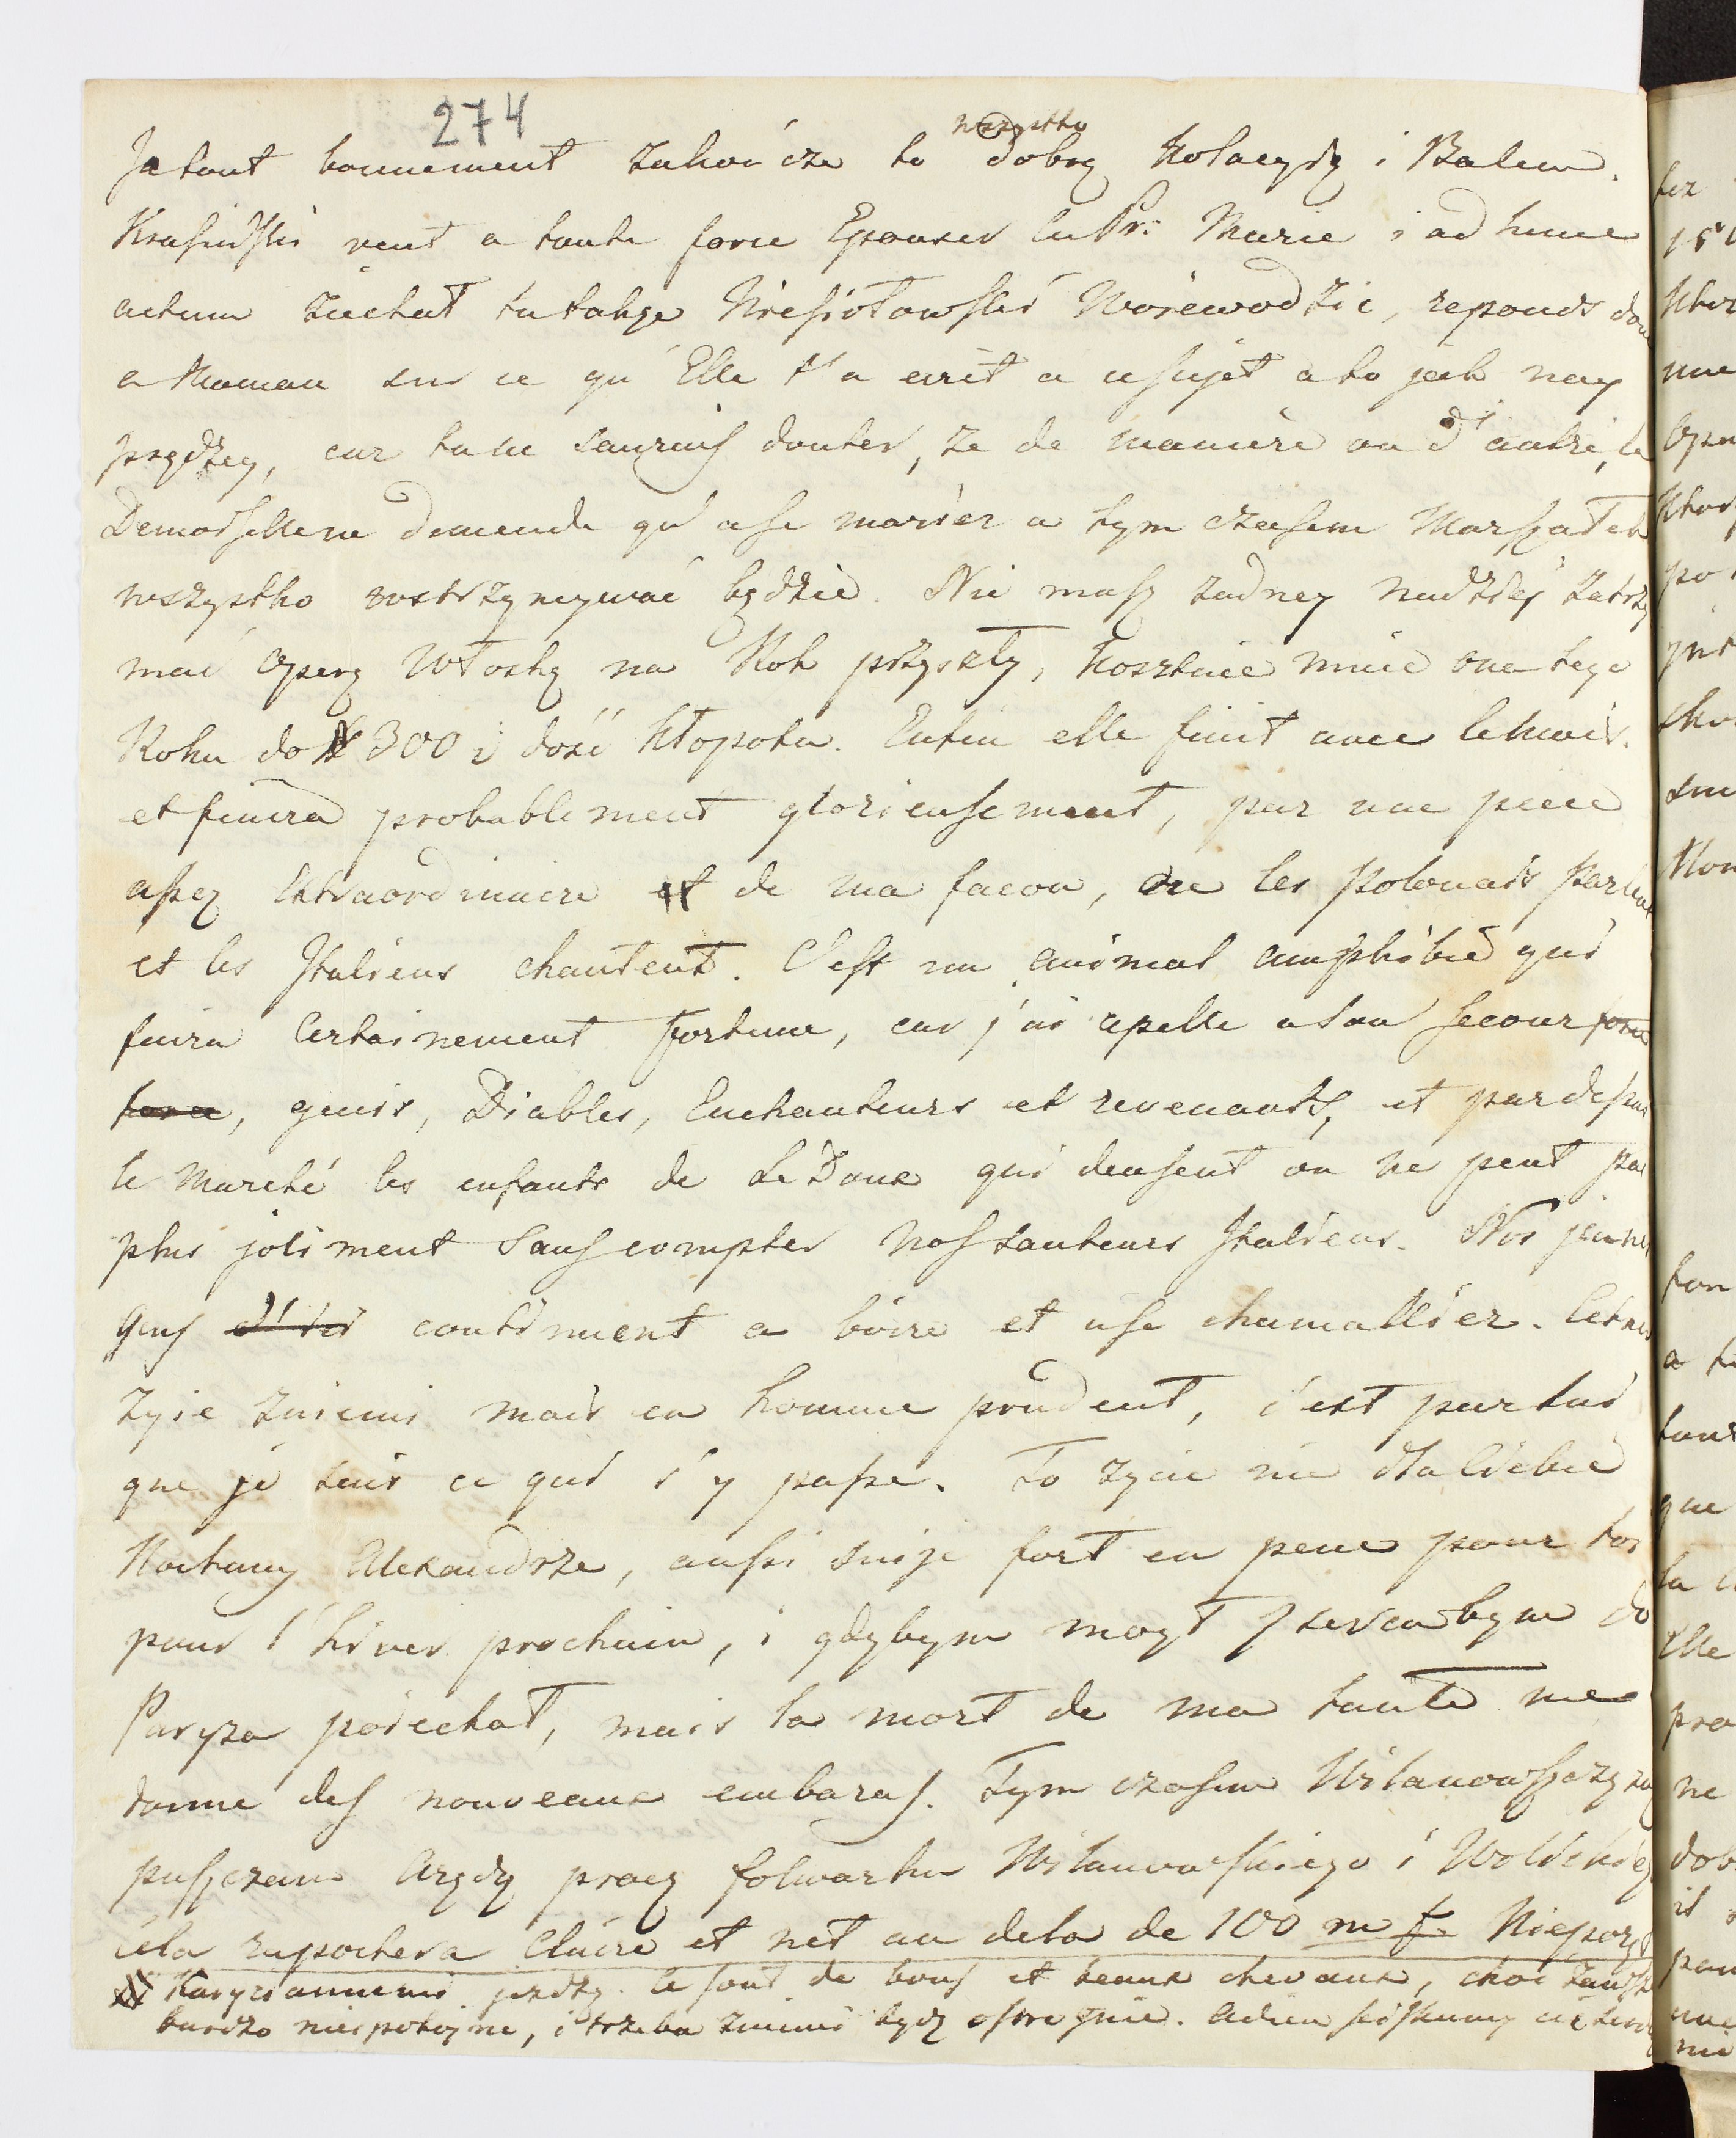 274
wszystko
Ja tout bonnement zakończe to dobrą Kolacyą i Balem.
Krasiński veut a toute force Epouser la Prss Marie i ad hunc
actum ziechał tu także Niesiołowski Woiewodzic, reponds donc
a Maman sur ce qu'Elle t'a ecrit a ce sujet a to jak nay
prędzey, car tu ne saurais douter, ze de maniere ou d'autre, la
Demoiselle ne demende qu'a se marier a tym czasem Marszałek
wszystko rostrzygnywać będzie. Nie masz żadney nadziei zatrzy
mać Operę Włoską na Rok przyszły, kosztuie mnie ona tego
Roku do # 300 i dość kłopotu. Enfin elle finit avec le mois.
et finira probablement glorieusement, par une piece
assez Extraordinaire et de ma facon, ou les Polonais parlent
et les Italiens chantent. C'est un animal amphibie qui
faira Certainement fortune, car j'ai apellé a son secour
, genies, Diables, Enchanteurs et revenants, et par dessus
le marché les enfants de LeDoux qui densent on ne peut pas
plus joliment sans compter nos sauteurs Italiens. Nos jeunes
gens d'ici continuent a boire et a se chamallier.
zyie zniemi mais en homme prudent, c'est par lui
que je sais ce qui s'y passe. To zycie nie dla Ciebie
Kochany Alexandrze, aussi suije fort en pene pour toi
pour l'hiver prochain, i gdybym mogł z serca bym do
Paryza poiechał, mais la mort de ma tante me
donne des nouveaux embaras. Tym czasem Wilanowszczyznę
puszczam Arędą procz folwarku Wilanowskiego i Wolickieg
cela raportera Claire et net au dela de 100 m f.
Karyiannemi jezdzę. Ce sont de bons et beaux chevaux, choć zawsze
bardzo niespokoyne, i trzeba zniemi bydz ostroznie. Adieu sciskamy cię